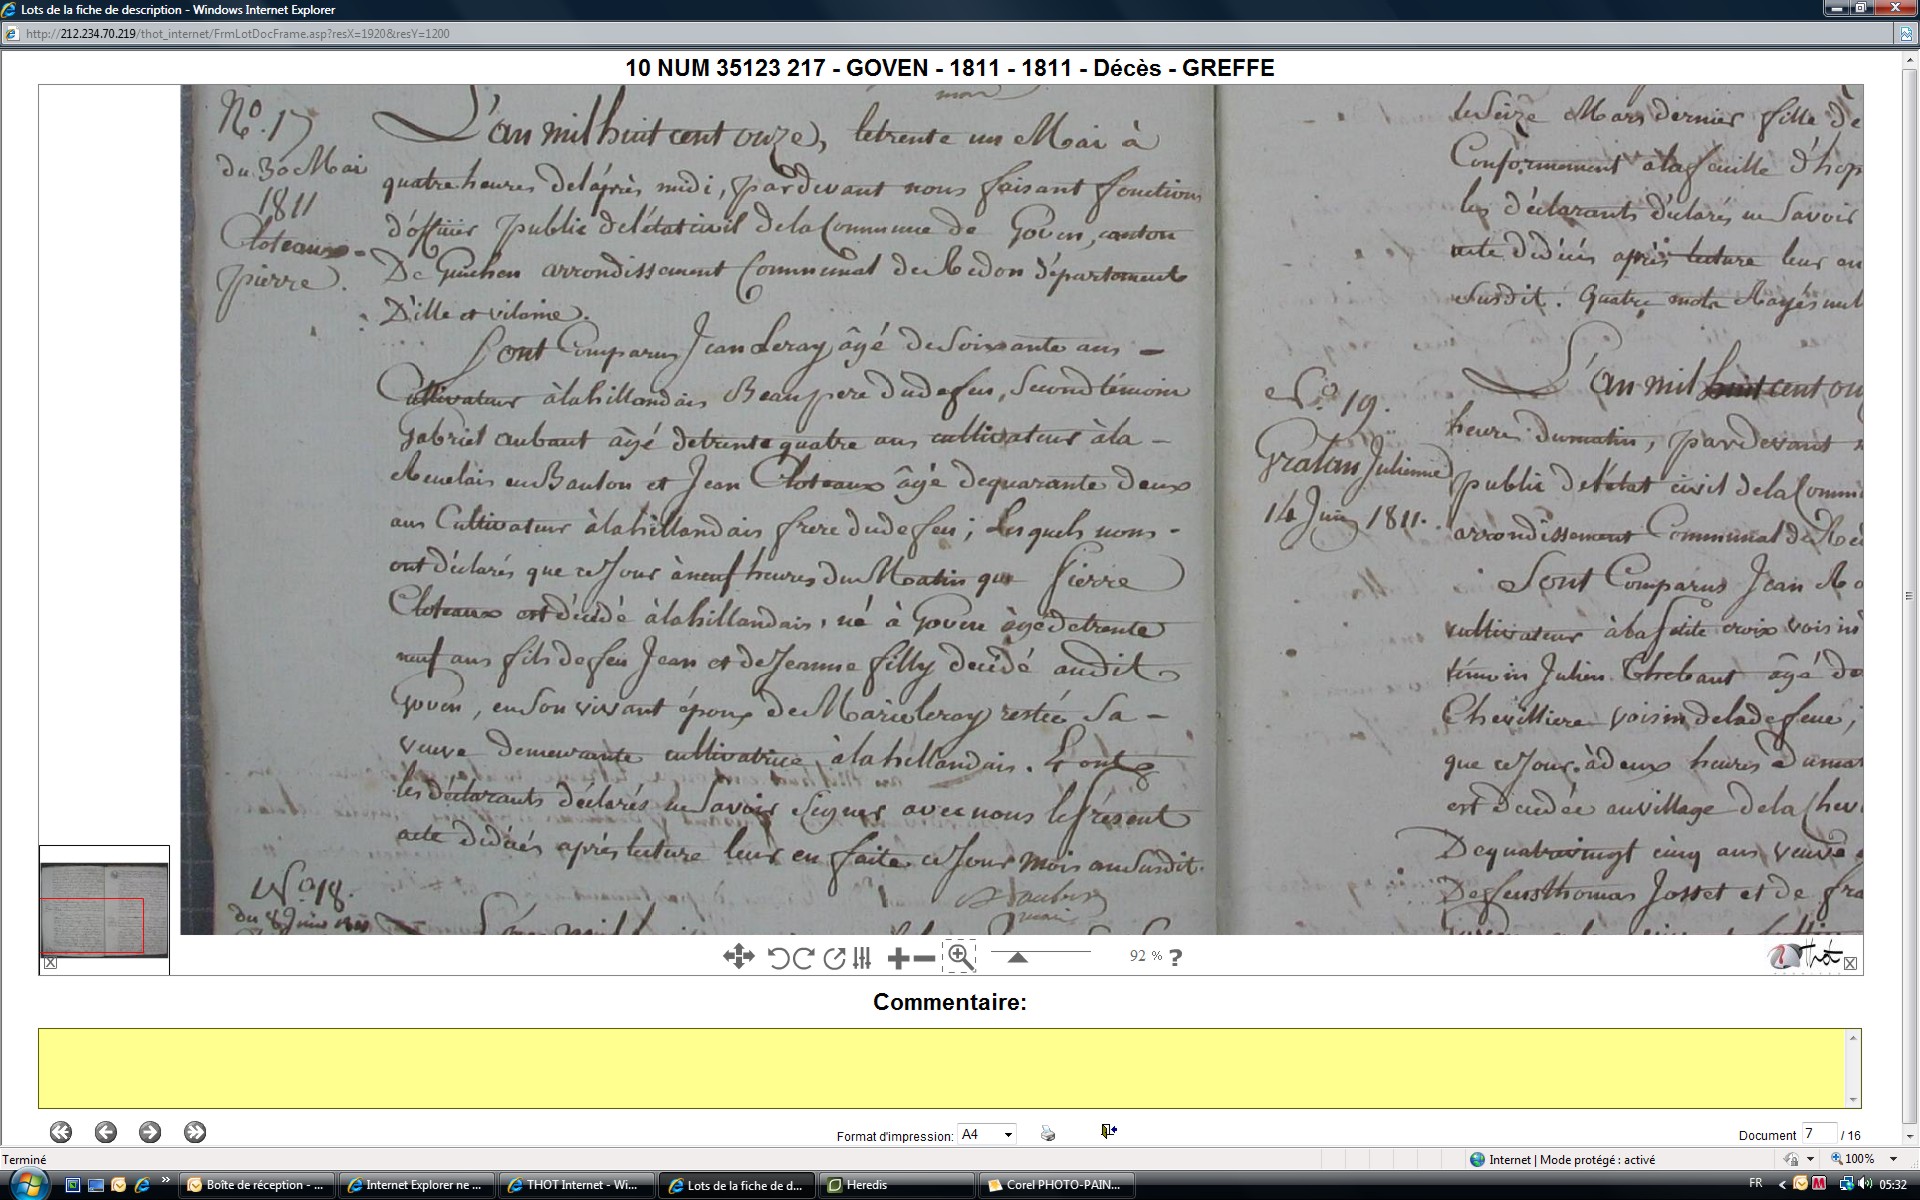 Lots de la fiche de description - Windows Internet Explorer
http://212.234.70.219/thot_internet/FrmLotDocFrame.asp?resX=1920&resY=1200
10 NUM 35123 217 - GOVEN - 1811 - 1811 - Décès - GREFFE
No. 17
du 30 Mai
1811
Cloteaux
pierre.
maire
L'an mil huit cent onze, le trente un Mai à
quatre heures de l'après midi, par devant nous faisant fonctions
d'officier public de l'état civil de la Commune de Goven, canton
De Guichen arrondissement Communal de Redon département
D'ille et vilaine.
Sont Comparus Jean Leray âgé de Soixante ans -
Cultivateur à la hillandais Beaupere du defeu, Second témoin
Gabriel aubaut âgé de trente quatre ans cultivateur à la -
en Baulon et Jean Cloteaux âgé de quarante deux
ans Cultivateur à la hillandais frere du defeu ; Lesquels nous -
ont déclarés que ce Jour à neuf heures du Matin que Pierre
Cloteaux est décédé à la hillandais, né à Goven âgé de trente
neuf ans fils de feu Jean et de Jeanne filly décédé audit
Goven, en Son vivant époux de Marie leray restée Sa -
veuve demeurante cultivatrice à la hillandais. Et ont
les déclarants déclarés ne Savoir Signer avec nous le Présent
acte de décés après lecture leur en faite ce Jour mois an Susdit.
maire
No. 18.
du 8 Juin 1811
le Seize Mars dernier fille de
Conformement à la feuille d'hop
les déclarants déclarés ne Savoir
acte de décés après lecture leur en
Susdit. Quatre mots Rayés nul
No. 19.
Gratan Julienne
14 Juin 1811.
L'an mil huit cent on
heures du matin, par devant n
public de l'état civil de la Comm
arrondissement Communal de Re
Sont Comparus Jean Ro
cultivateur à la Petite croix voisin
témoin Julien Thebaut âgé de
Chevilliere voisin de la defeue ;
que ce Jour à deux heures du mat
est décédée au village de la Chev
De quatrevingt cinq ans veuve
De feu thomas Josset et de fra
92 % ?
Thot
Commentaire:
Format d'impression: A4
Document 7 / 16
Terminé
Internet | Mode protégé : activé
100%
Boîte de réception - ...
Internet Explorer ne ...
THOT Internet - Wi...
Lots de la fiche de d...
Heredis
Corel PHOTO-PAIN...
FR
05:32